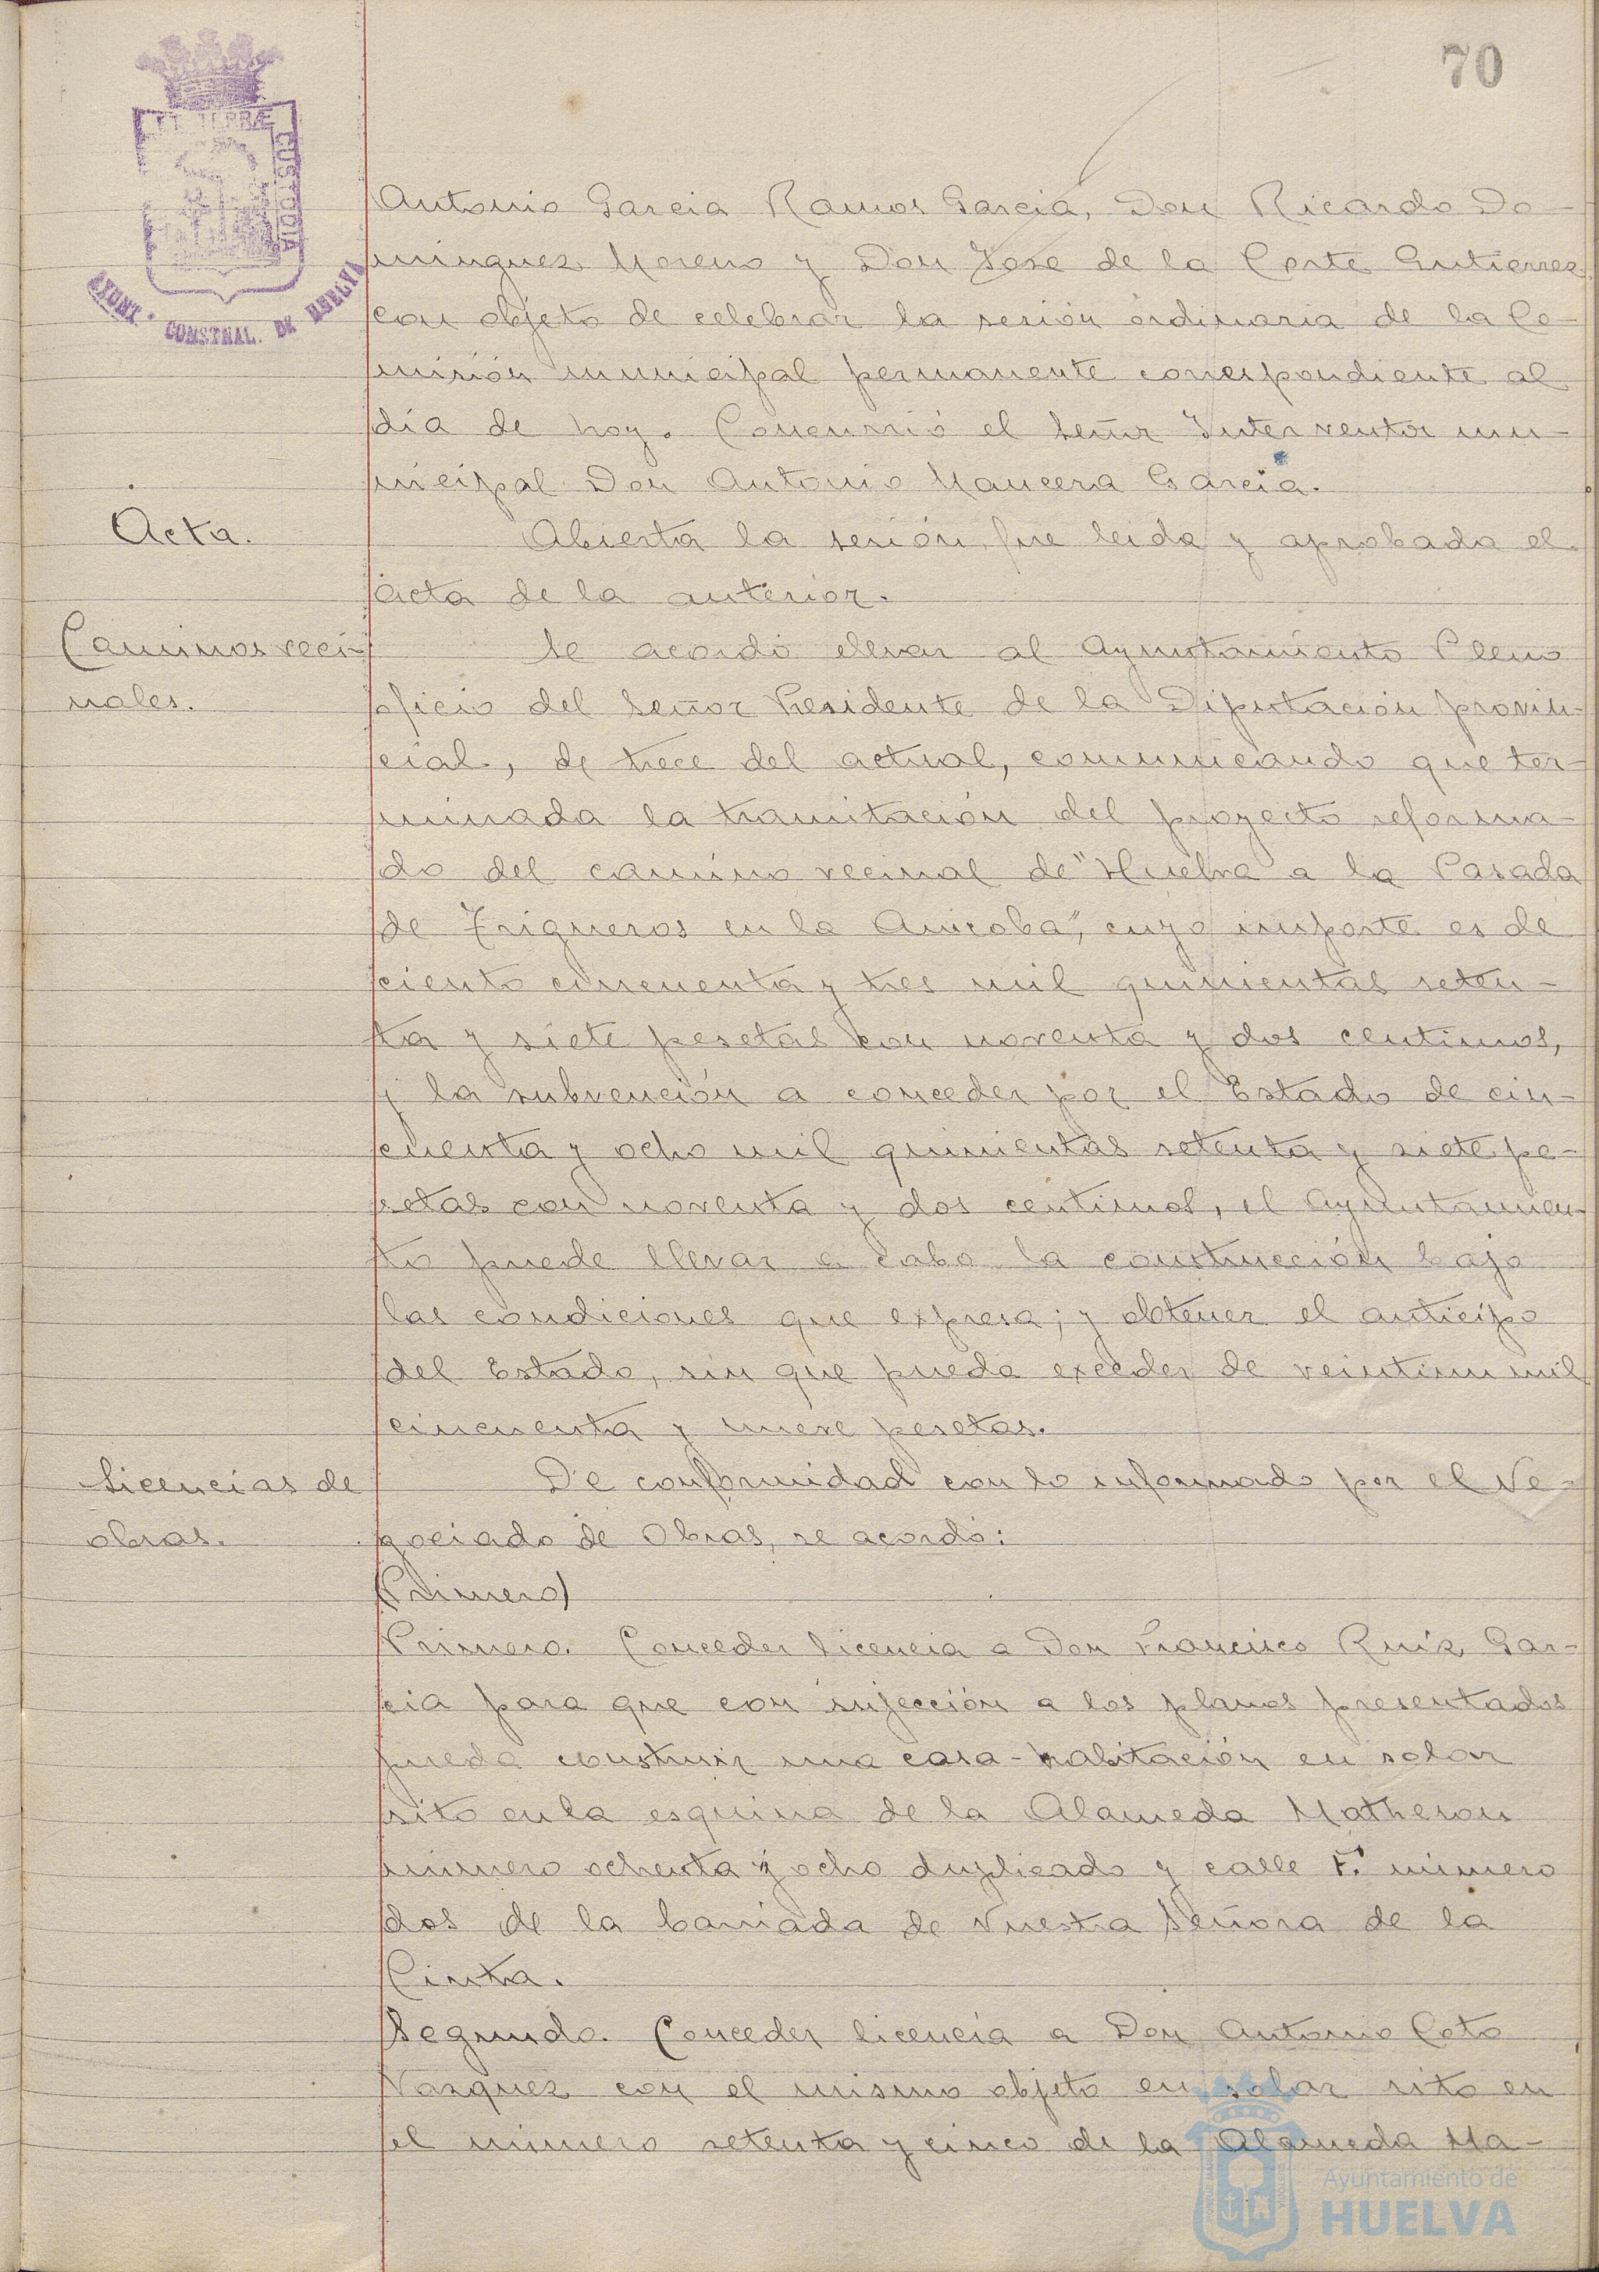 70
ET TERRÆ CUSTODIA
AYUNT. CONSTNAL. DE HUELVA
Antonio Garcia Ramos Garcia, Don Ricardo Do-
minguez Moreno y Don José de la Corte Gutierrez
con objeto de celebrar la sesión ordinaria de la Co-
misión municipal permanente correspondiente al
día de hoy. Concurrió el Señor Interventor mu-
nicipal Don Antonio Mancera Garcia.
Acta.
Abierta la sesión, fue leida y aprobada el
acta de la anterior.
Caminos veci-
nales.
Se acordó elevar al Ayuntamiento Pleno
oficio del Señor Presidente de la Diputación provin-
cial, de trece del actual, comunicando que ter-
minada la tramitación del proyecto reforma-
do del camino vecinal de "Huelva a la Pasada
de Trigueros en la Anicoba", cuyo importe es de
ciento cincuenta y tres mil quinientas seten-
ta y siete pesetas con noventa y dos centimos,
y la subvención a conceder por el Estado de cin-
cuenta y ocho mil quinientas setenta y siete pe-
setas con noventa y dos centimos, el Ayuntamien-
to puede llevar a cabo la construcción bajo
las condiciones que expresa; y obtener el anticipo
del Estado, sin que pueda exceder de veintiun mil
cincuenta y nueve pesetas.
Licencias de
obras.
De conformidad con lo informado por el Ne-
gociado de Obras, se acordó:
(Primero)
Primero. Conceder licencia a Don Francisco Ruiz Gar-
cia para que con sujección a los planos presentados
pueda construir una casa-habitación en solar
sito en la esquina de la Alameda Matheson
número ochenta y ocho duplicado y calle F. número
dos de la barriada de Nuestra Señora de la
Cinta.
Segundo. Conceder licencia a Don Antonio Coto
Vazquez con el mismo objeto en solar sito en
el número setenta y cinco de la Alameda Ma-
Ayuntamiento de
HUELVA